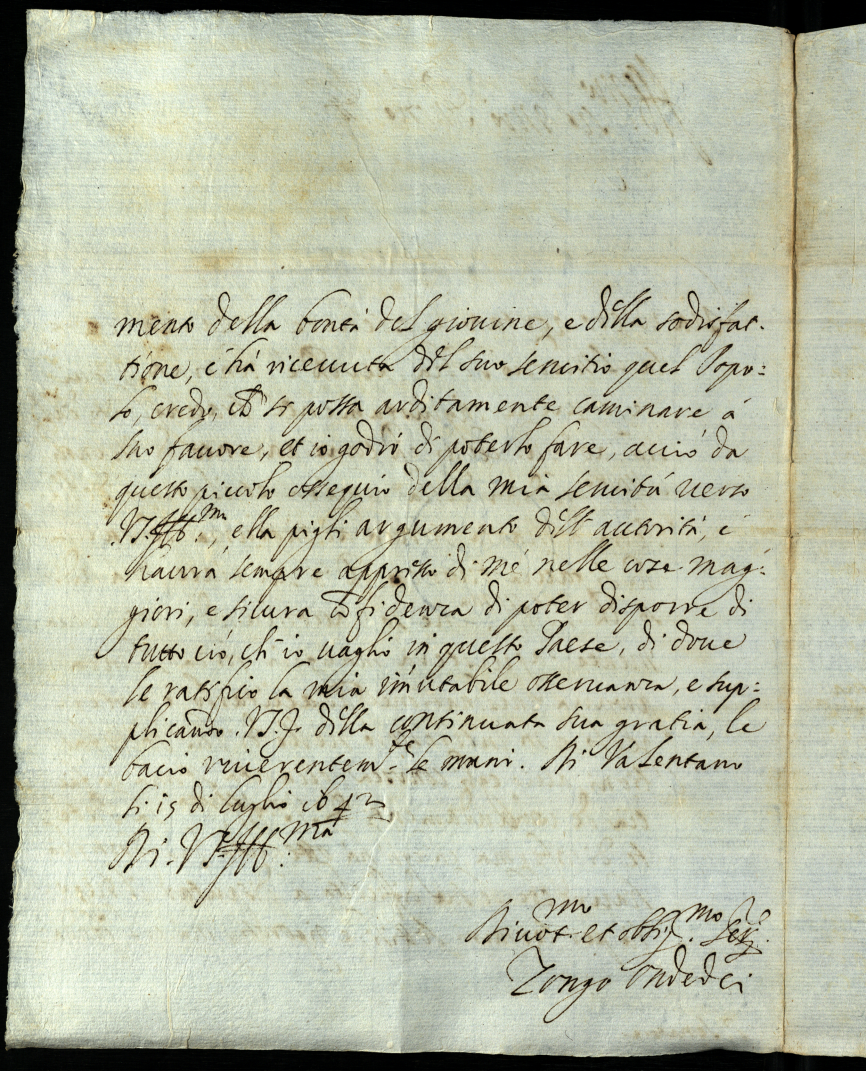 mento della bontà del giouine, e della sodisfat-
tione, c'hà riceuuta del suo seruitio quel Popo-
lo, credo, ch si possa arditamente caminare à
suo fauore, et io godrò di poterlo fare, acciò da
questo piccolo ossequio della mia seruitù uerso
V.S. Ill.ma, ella pigli argumento dell'autorità, c'
haurà sempre appresso di mè nelle cose mag-
giori, e sicura cōfidenza di poter disporre di
tutto ciò, ch'io uaglio in questo Paese, di doue
le ratifico la mia im̃utabile osseruanza, e sup-
plicando V.S.I. della continuata sua gratia, le
bacio riuerentem.te le mani. Di Valentano
li 15 di luglio 1642
Di V.S. Ill.ma
Diuot.mo et oblig.mo Ser.re
Zongo Ondedei